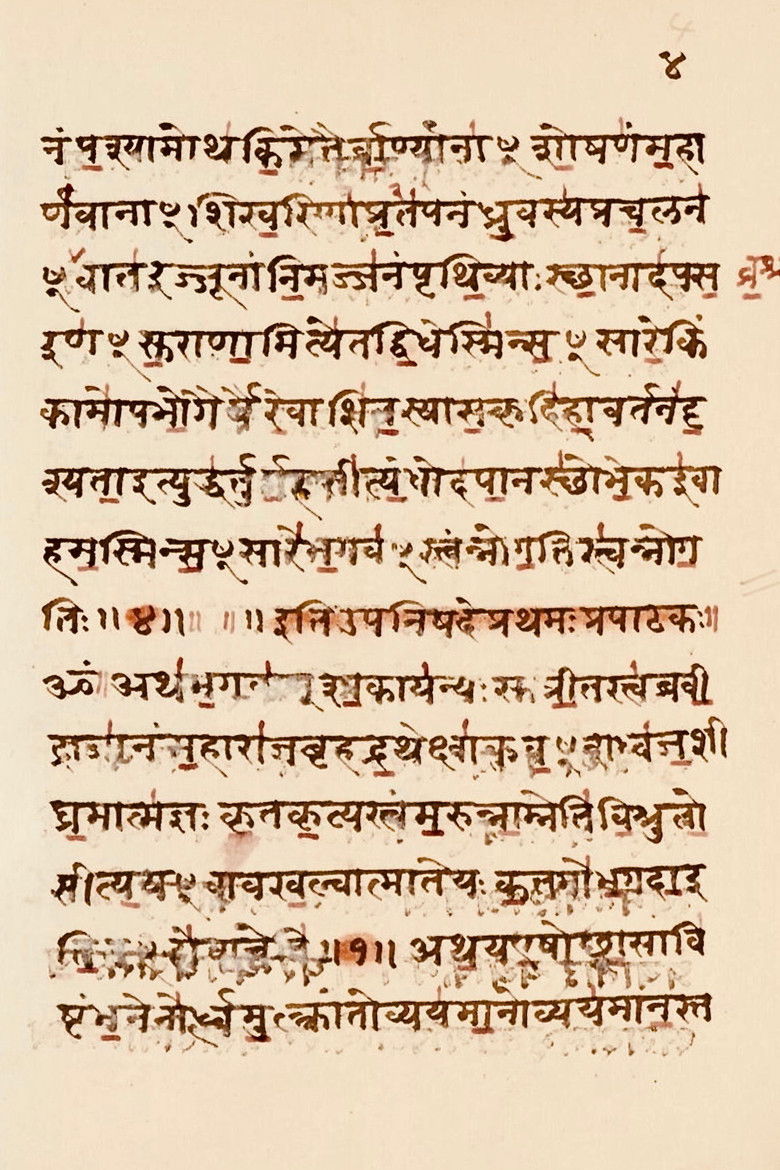 ४
नं पश्यामोथ किमेतैर्वाण्यानाꣳ शोषणं महा
र्णवानाꣳ। शिखरिणां प्रतपनं ध्रुवस्य प्रचलन
ꣳ वातरज्जूनां निमज्जनं पृथिव्याः स्छानादपस
रणꣳ स्तराणामित्येतद्विधेस्मिन्सꣳसारे किं
कामोपभोगैर्यैरेवाशितस्यासकृदिहावर्तनं दृ
श्यता इत्युद्धर्तु सीत्यंधोदपानस्छो भेक इवा
हमस्मिन्सꣳसारे भगवꣳस्त्वंन्नो गतिस्त्वन्नो ग
तिः॥ ४॥ ॥ इति उपनिषदे प्रथमः प्रपाठकः॥
ॐ अथ भगवा कायन्यः त्रीतस्त्वब्रवी
द्राजानं महाराज बृहद्रथेक्ष्वाकुवꣳशध्वज शी
घ्रमात्मज्ञः कृतकृत्यस्त्वं मरुन्नाम्नेति विश्रुतो
सीत्ययꣳ वाव खल्वात्मा ते यः कतमो भगव इ
ति ॥१॥ अथ य एषोछ्वासावि
ष्टंभनेनोर्ध्वमुत्क्रांतो व्ययमानोव्ययमानस्त